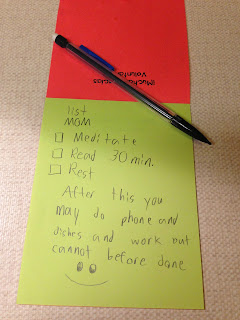 list
MOM
Meditate
Read 30 min.
Rest
After this you
may do phone and
dishes and work out
cannot before done